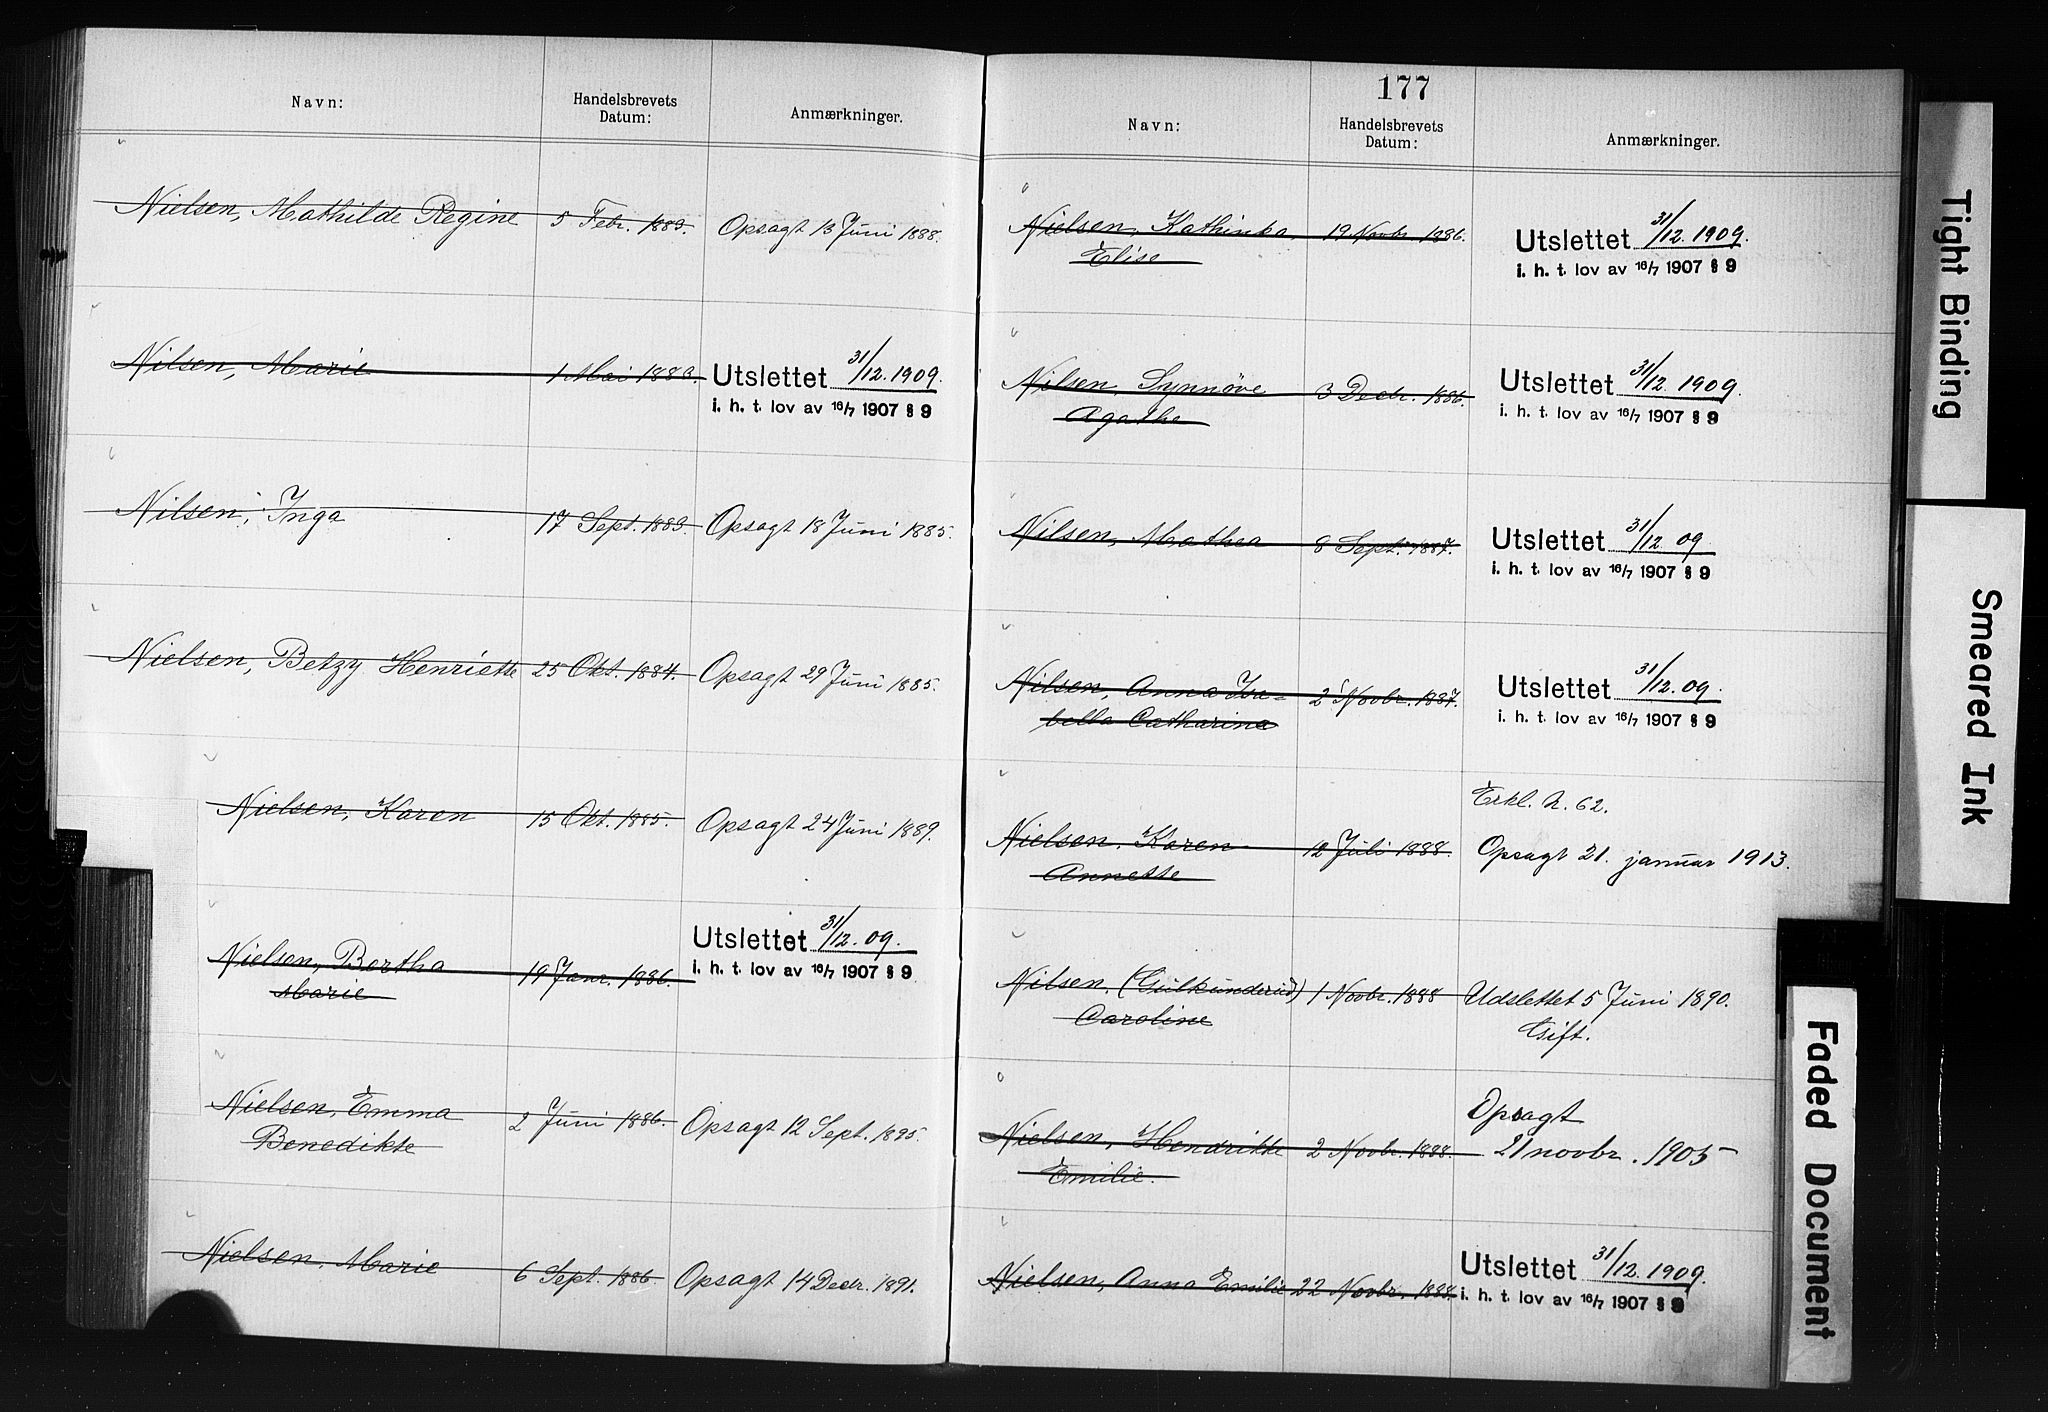 Navn:
Handelsbrevets
Datum:
Anmærkninger.
Nielsen, Mathilde Regine 5 Febr. 1883. Opsagt 13 Juni 1888.
Nilsen, Marie 1 Mai 1883. Utslettet 31/12. 1909.
i. h. t. lov av 16/7 1907 § 9
Nilsen, Inga 17 Sept. 1883. Opsagt 18 Juni 1885.
Nielsen, Betzy Henriette 25 Okt. 1884. Opsagt 29 Juni 1885.
Nielsen, Karen 15 Okt. 1885. Opsagt 24 Juni 1889.
Utslettet 31/12. 09.
Nielsen, Bertha 19 Janr. 1886. i. h. t. lov av 16/7 1907 § 9
Marie
Nielsen, Emma 2 Juni 1886. Opsagt 12 Sept. 1895.
Benedikte
Nielsen, Marie 6 Sept. 1886. Opsagt 14 Decr. 1891.
177
Navn:
Handelsbrevets
Datum:
Anmærkninger.
Nielsen, Kathinka 19 Novbr. 1886. Utslettet 31/12. 1909.
Elise i. h. t. lov av 16/7 1907 § 9
Nilsen, Synnøve 3 Decbr. 1886. Utslettet 31/12. 1909.
Agathe i. h. t. lov av 16/7 1907 § 9
Nilsen, Mathea 8 Sept. 1887. Utslettet 31/12 09.
i. h. t. lov av 16/7 1907 § 9
Nilsen, Anna Isa- 2 Novbr. 1887. Utslettet 31/12. 09.
bella Catharina i. h. t. lov av 16/7 1907 § 9
Erkl. N. 62.
Nielsen, Karen 12 Juli 1888. Opsagt 21. januar 1913.
Annette
Nilsen, (Gulkunderud) 1 Novbr. 1888 Udslettet 5 Juni 1890.
Caroline Gift.
Opsagt
Nielsen, Hendrikke 2 Novbr. 1888. 21 novbr. 1905
Emilie.
Utslettet 31/12. 1909.
Nielsen, Anna Emilie 22 Novbr. 1888. i. h. t. lov av 16/7 1907 § 9
Tight Binding
Smeared Ink
Faded Document